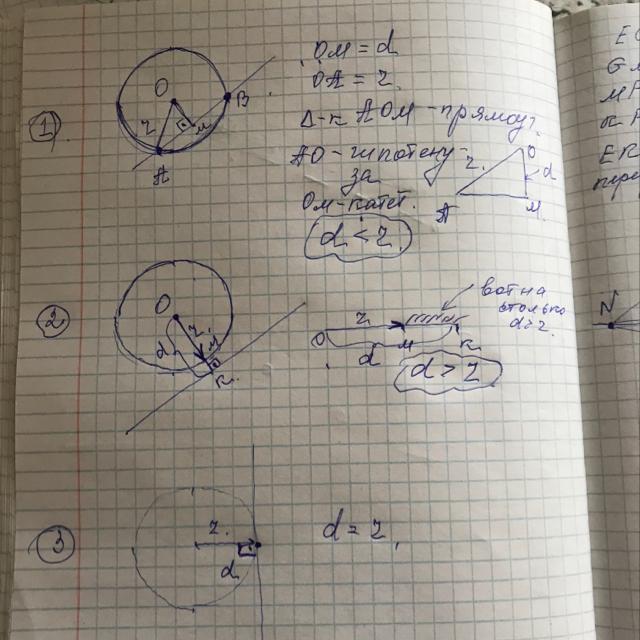 1
O
r
M
B
A
OM = d
OA = r
Δ-к AOM - прямоуг.
AO - гипотену-
за
OM - катет.
d < r
r
O
d
A
M
2
O
r
M
d
K
вот на
столько
d>r.
r
O
d
M
K
d > r
3
r
d
d = r
N